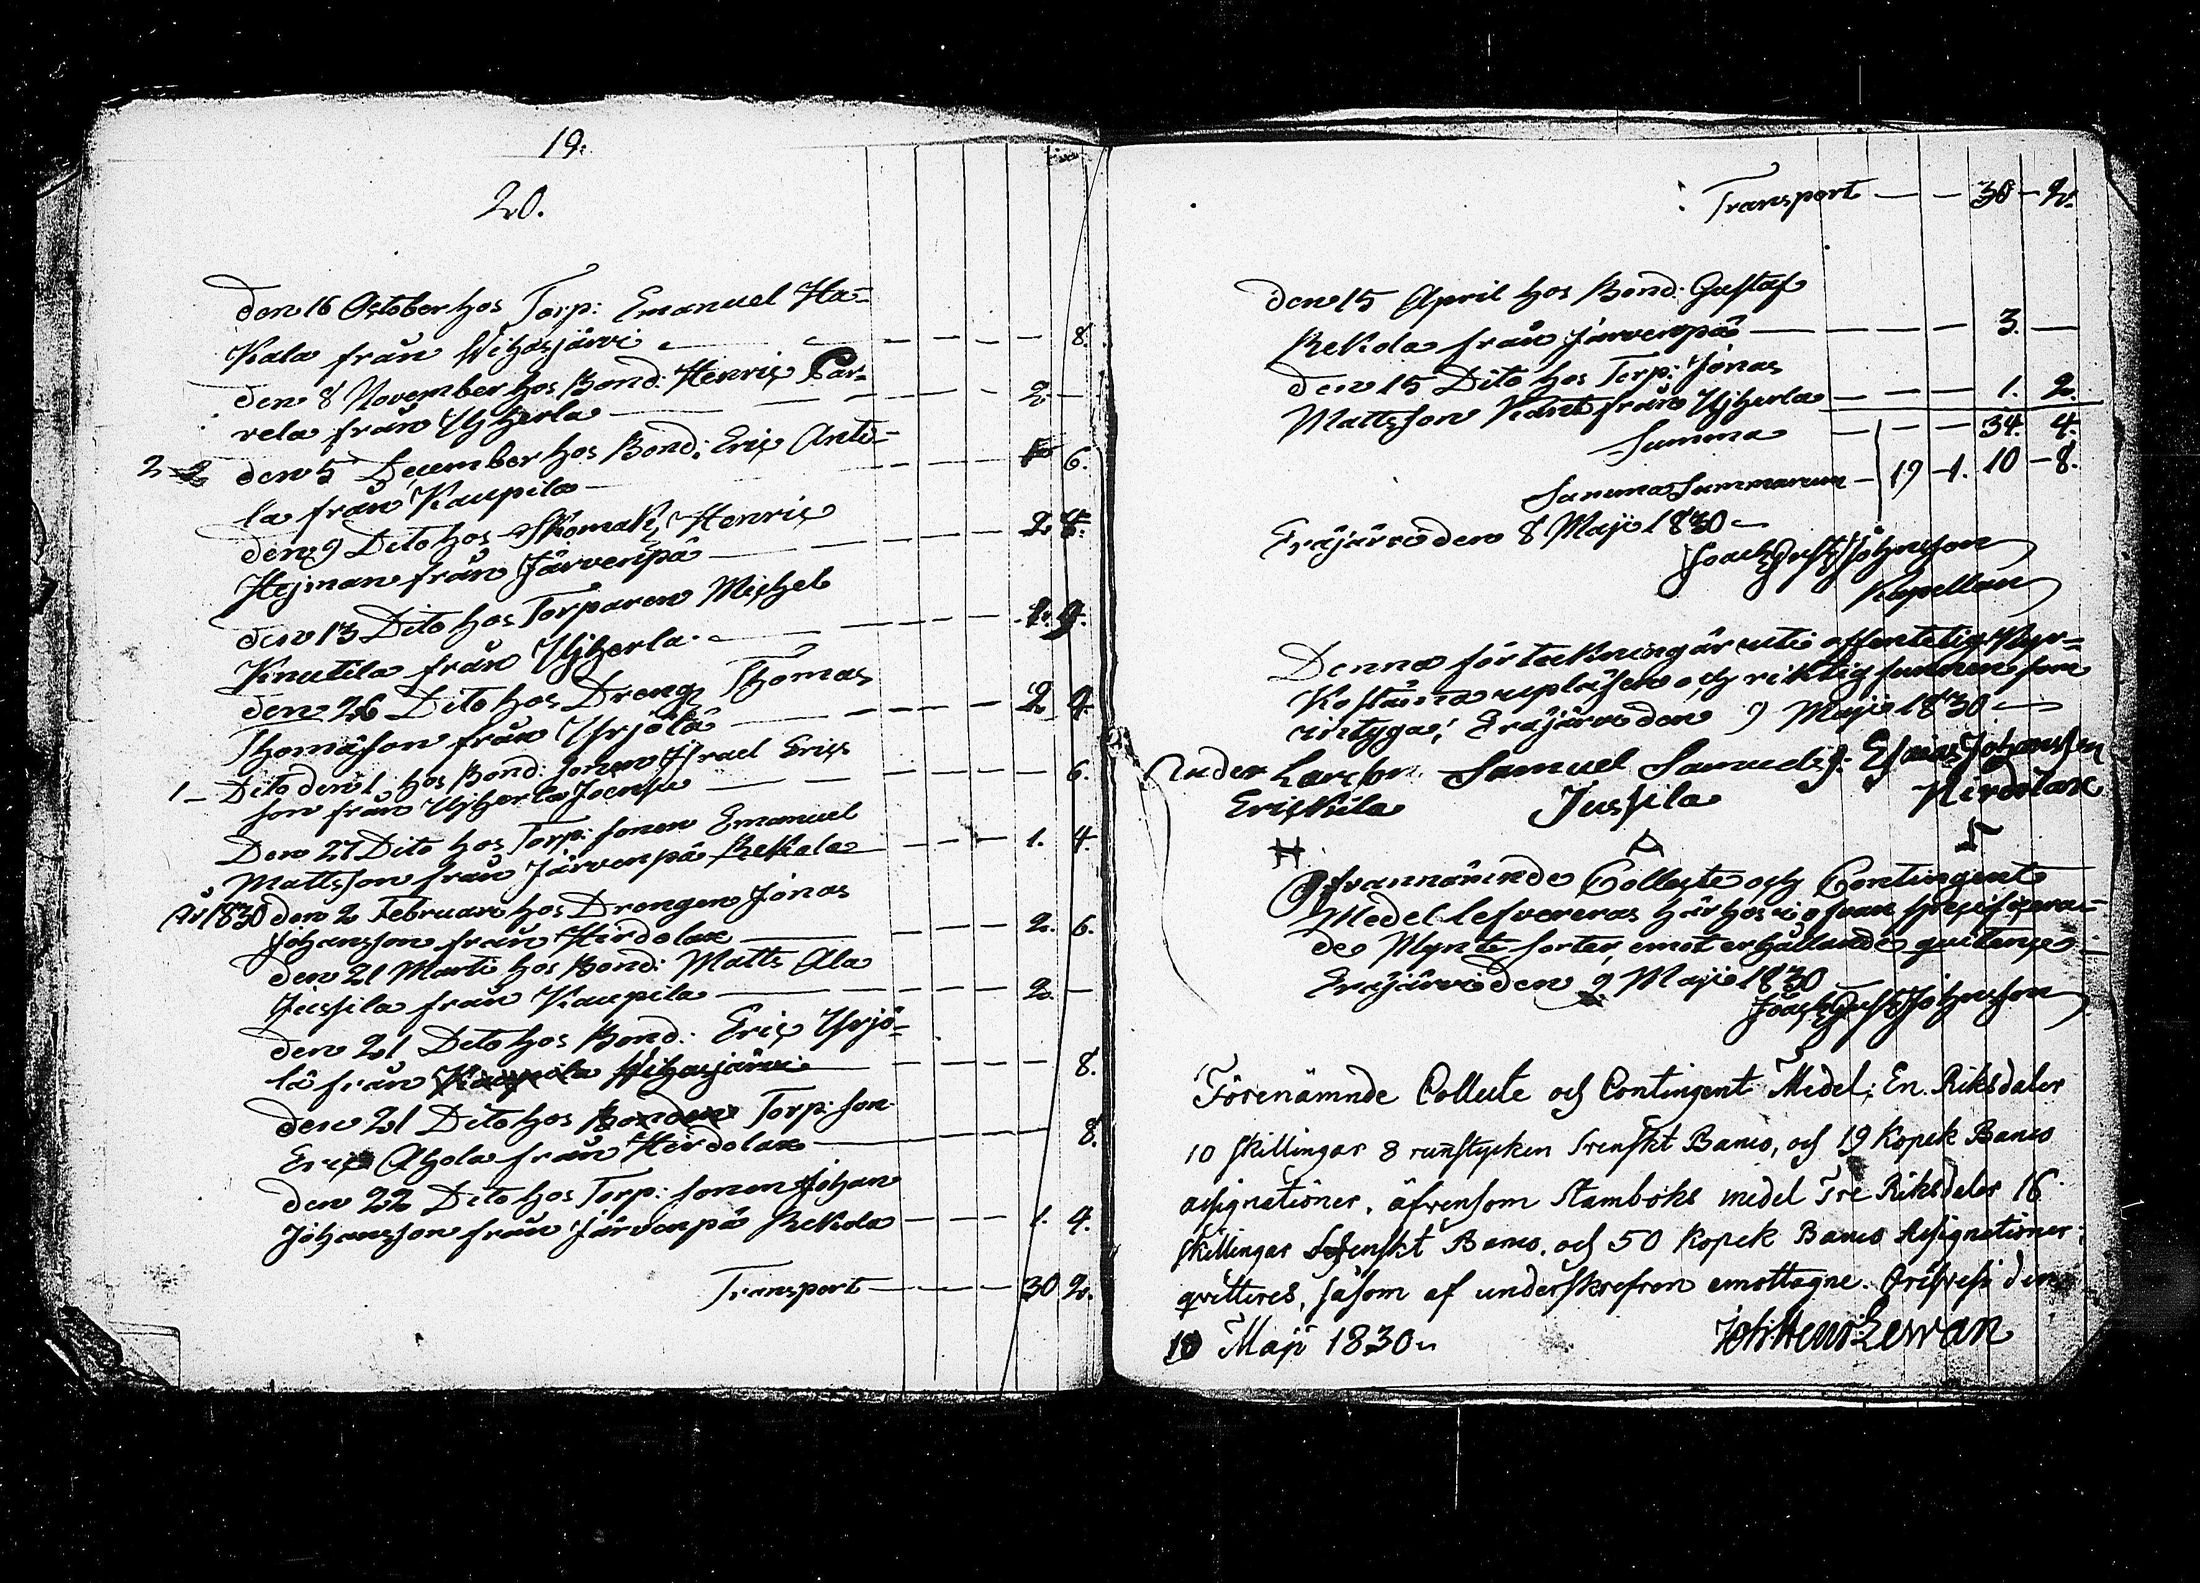 19.
20.
den 16 October hos Torp: Emanuel Ha-
kala från Wihasjärvi — — — — 8.
den 8 November hos Bond: Henric Par-
vela från Uiherla — — — 2 —
2 den 5 December hos Bond: Eric Anti-
la från Kaupila — — 6.
den 9 Dito hos Skomak: Henric
Hejman från Järvenpä — — — 2
den 13 Dito hos Torparen Michel
Knutila från Uiherla — — —
den 26 Dito hos Dreng Thomas
Thomasson från Yrjölä — — — 2 4.
1 — Dito den 1 hos Bond: sonen Israel Erics
son från Uiherla — — — — 6.
Den 27 Dito hos Torp: sonen Emanuel
Mattsson från Järvenpä Rekola — — — 1. 4.
År 1830 den 2 Februari hos Drengen Jonas
Johansson från Hirdolax — — 2. 6.
den 21 Marti hos Bond: Matts Ala
Jussila från Kaupila — — — 2. —
den 21 Dito hos Bond: Eric Yrjö-
lä från Kaupila Wihasjärvi — — — 8.
den 21 Dito hos Bonden Torp: son
Eric Ahola från Hirdolax — — 8.
den 22 Dito hos Torp: sonen Johan
Johansson från Järvenpä Rekola — — — 1. 4.
Transport — — — 30 2.
Transport — — 30 — 2.
den 15 April hos Bond: Gustaf
Rekola från Järvenpä — — — 3. —
den 15 Dito hos Torp: Jonas
Mattsson Kant från Uiherla — — — 1. 2.
Summa — — — 34. 4.
Summa Summarum — 19 — 1. 10 — 8.
Eräjärvi den 8 Maji 1830 —
Joach: Gust: Johnsson
Kapellan
Denna förteckning är uti offentelig Kyr-
kostämma upläsen och riktig funnen som
intyga; Eräjärvi den 9 Maji 1830 —
Ander Larsson Samuel Samuels: Esaias Johansson
Erickila Jussila Hirdolax
H A
Ofvannämnde Collecte och Contingent
Medel lefvereras härhos i ofvan specificera-
de Mynt sorter, emot erhållande qvitence
Eräjärvi den 9 Maji 1830
Joach: Gust: Johnsson
Förenämnde Collecte och Contingent Medel; En Riksdaler
10 skillingar 8 runstycken Svenskt Banco, och 19 Kopek Banco
assignationer, äfvensom Stamboks medel Tre Riksdaler 16
skillingar Svenskt Banco, och 50 Kopek Banco Assignationer;
qvitteres, såsom af underskrefven emottagne. Orihvesi den
10 Maji 1830